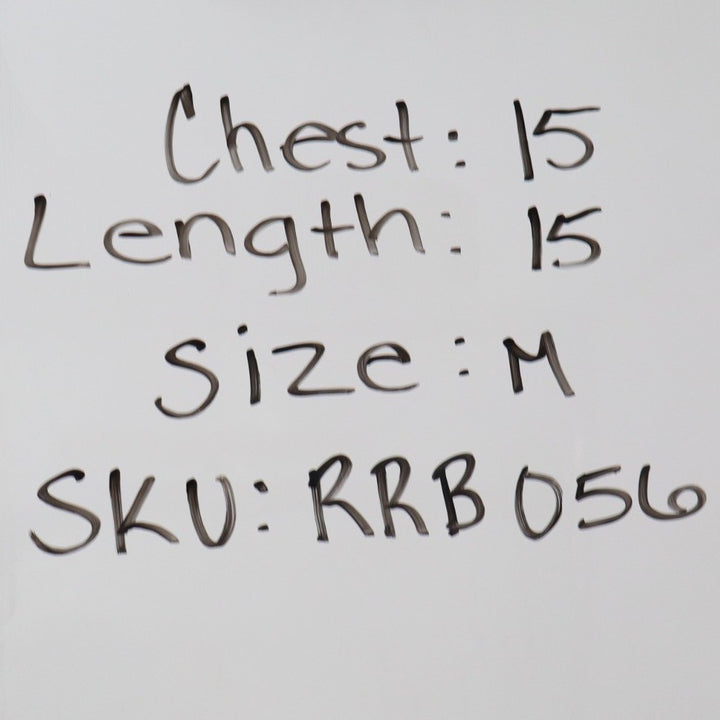 Chest: 15
Length: 15
Size: M
SKU: RRB056